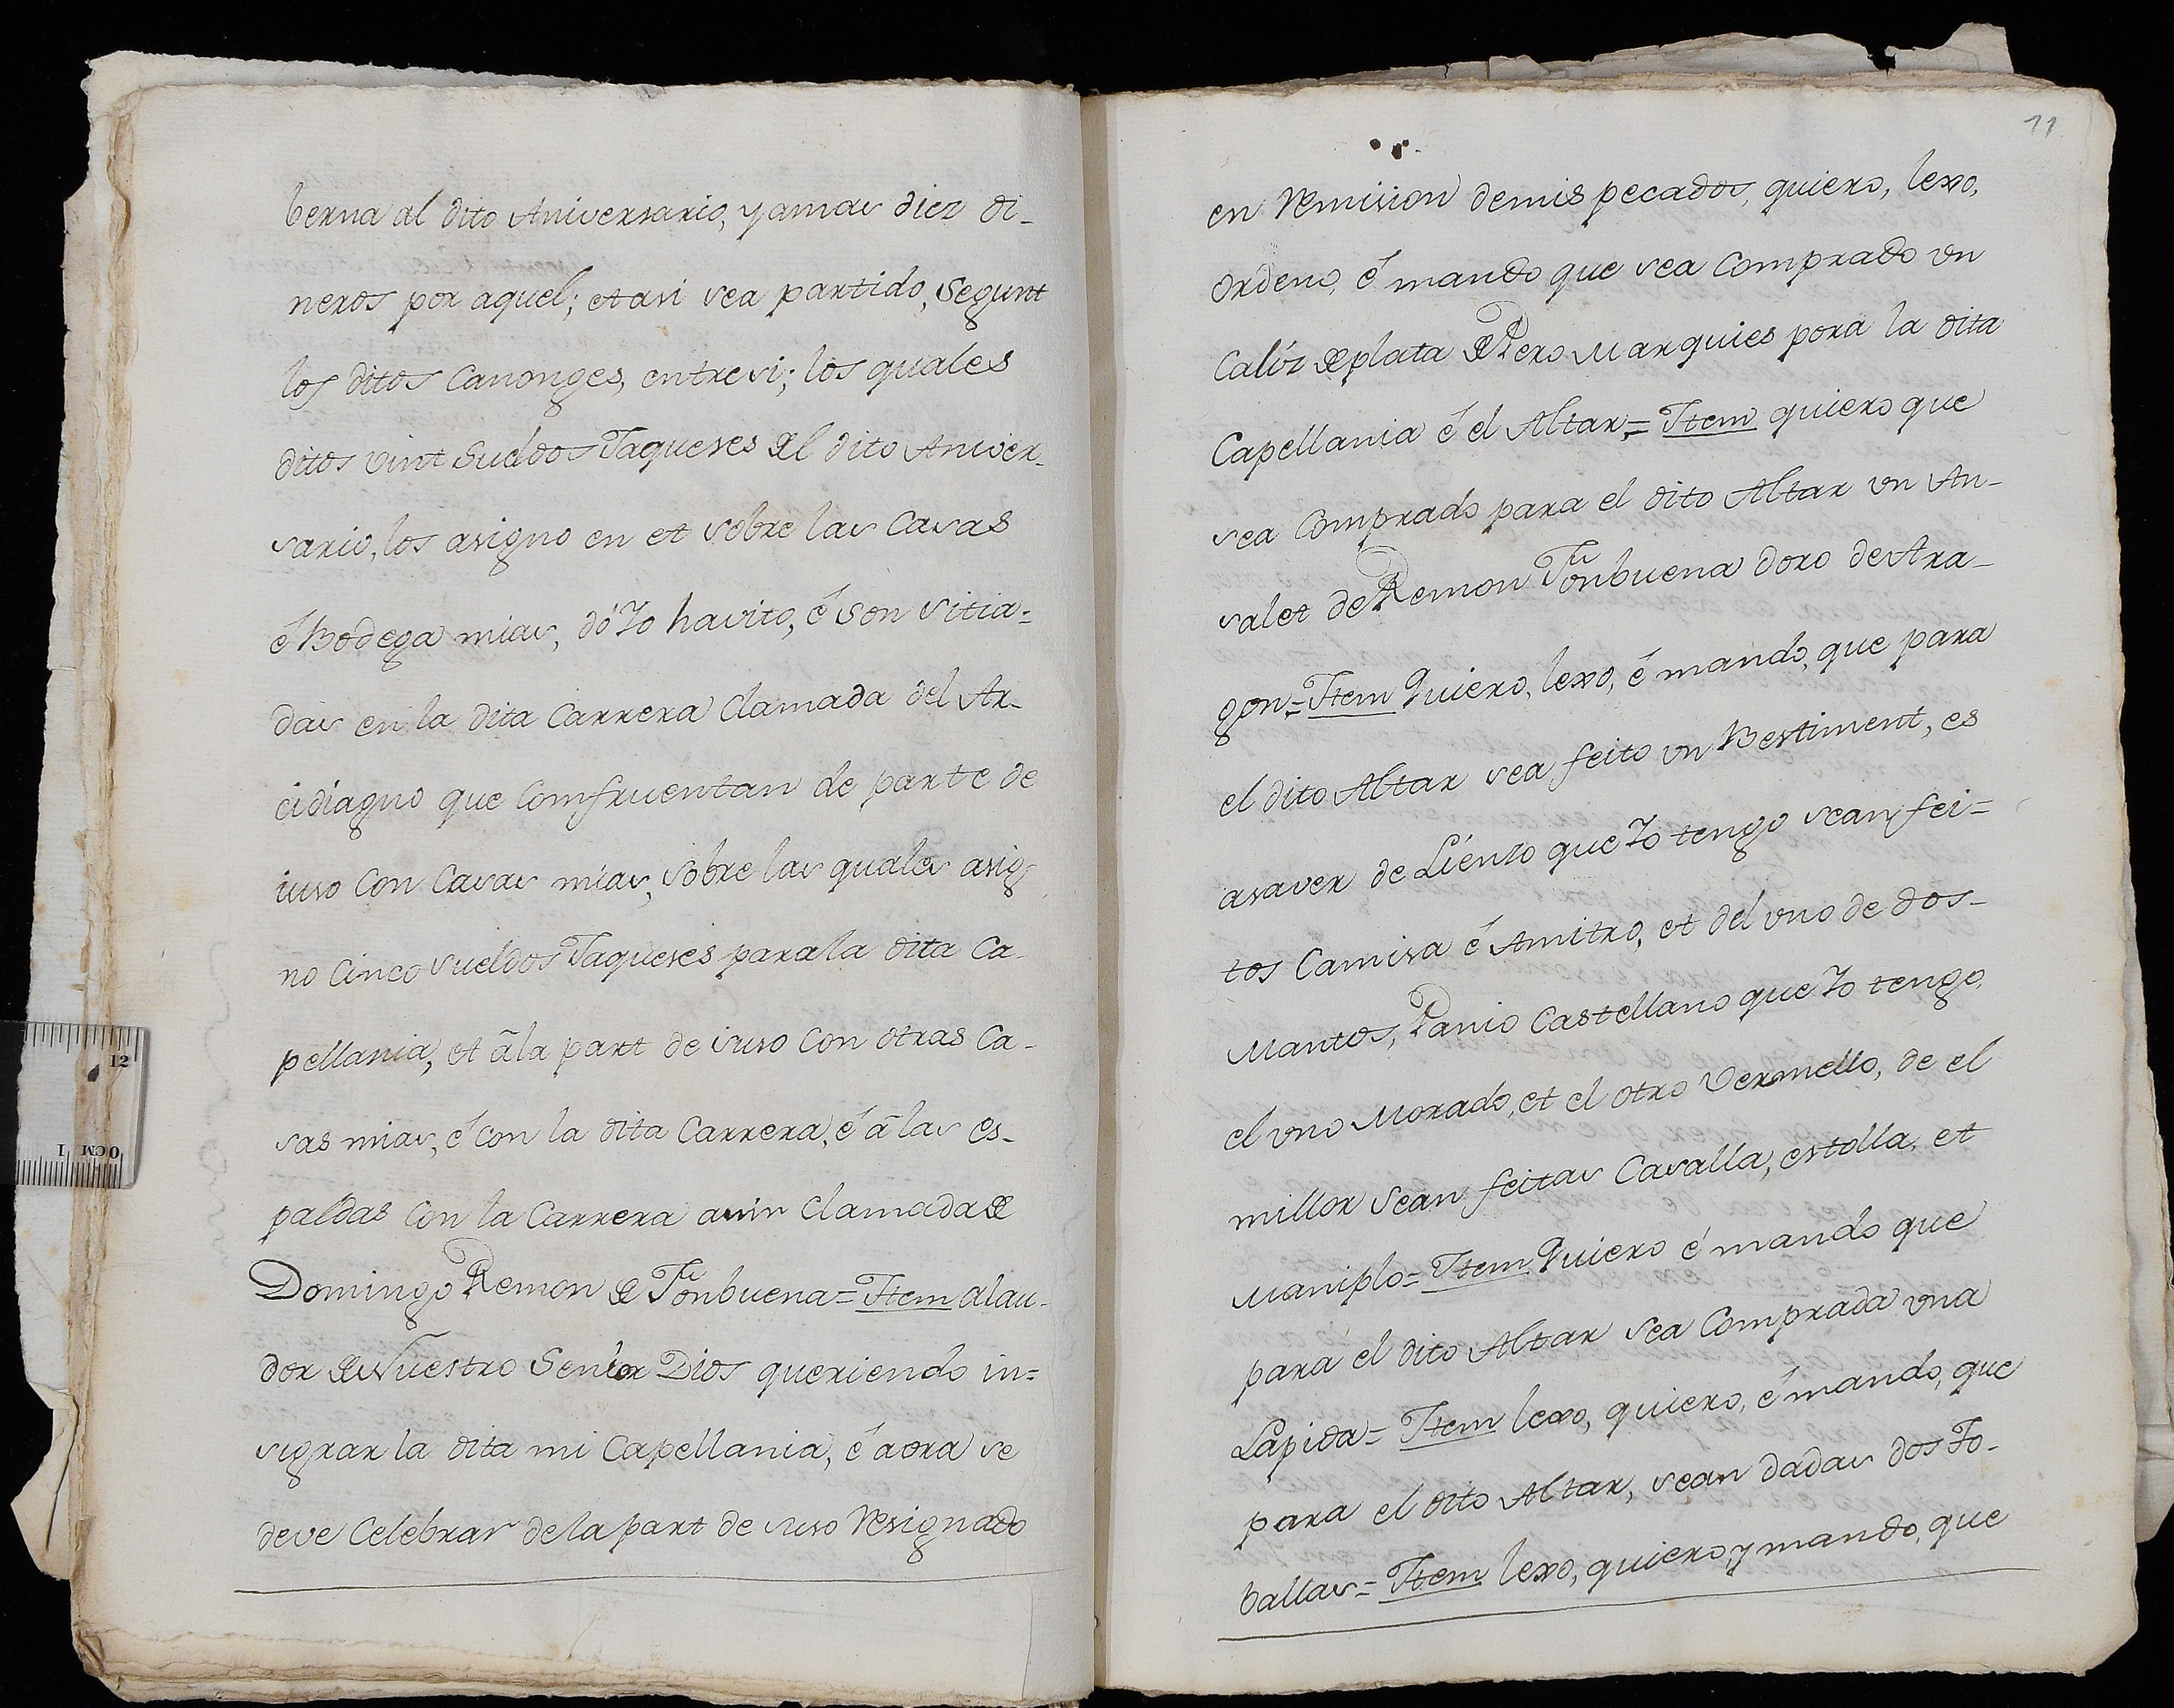 berna al dito Aniversario, y amas diez di-
neros por aquel; et asi sea partido, segunt
los ditos Canonges, entre si; los quales
ditos vint Sueldos Jaqueses del dito Aniver-
sario, los asigno en et sobre las Casas
é Bodega mias, dó Yo havito, é son sitia=
das en la dita Carrera Clamada del Ar-
cidiagno que Comfruentan de parte de
iuso Con Casas mias, sobre las quales asig
no Cinco sueldos Jaqueses para la dita Ca-
pellania, et à la part de suso Con otras Ca-
sas mias, é con la dita Carrera, é à las es-
paldas Con la Carrera asin Clamada de
Domingo Remon de Tonbuena = Item a lau-
dor de Nuestro Senior Dios queriendo in=
sigrar la dita mi Capellania, é aora se
deve Celebrar de la part de suso Resignado
11
en Remision de mis pecados, quiero, lexo,
Ordeno, é mando que sea Comprado un
Caliz de plata de Pero Marquies pora la dita
Capellania é el Altar = Item quiero que
sea Comprado para el dito Altar un An-
salet de Remon Tonbuena doro de Ara-
gon = Item Quiero, lexo, é mando, que para
el dito Altar sea feito un Bestiment, es
asaver de Lienzo que Yo tengo sean fei=
tos Camisa é Amitro, et del uno de dos-
Mantos, Panio Castellano que Yo tengo,
el uno Morado, et el otro Vermello, de el
millor sean feitas Casalla, estolla, et
Maniplo = Item Quiero é mando que
para el dito Altar sea Comprada una
Lapida = Item lexo, quiero, é mando, que
para el dito Altar, sean dadas dos To-
ballas = Item lexo, quiero, y mando, que